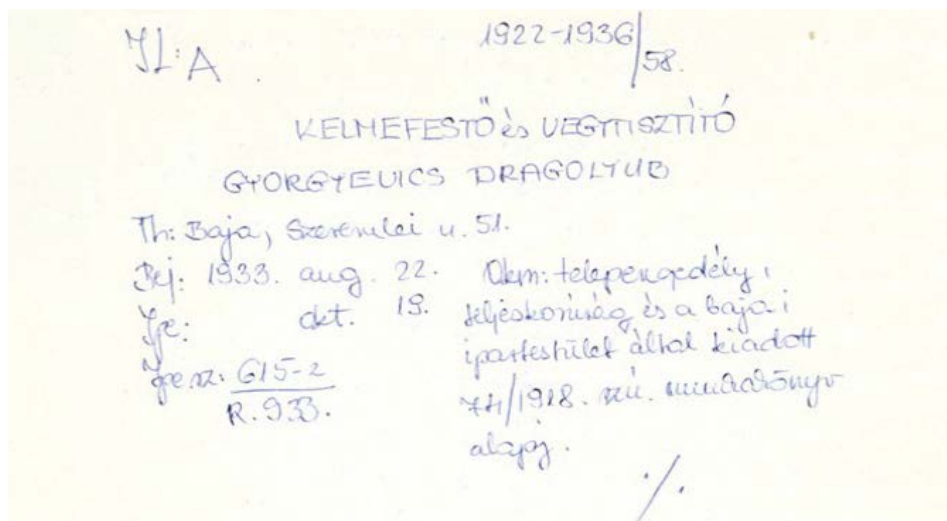 IL: A
1922-1936/58.
KELMEFESTŐ és VEGYTISZTÍTÓ
GYORGYEVICS DRAGOLYUB
Th: Baja, Szeremlei u. 51.
Bej: 1933. aug. 22.
Ipe: okt. 19.
Ipe sz: 615-2
R. 933.
Okm: telepengedély,
teljeskorúság és a bajai
ipartestület által kiadott
74/1918. szú. munkakönyv
alapj.
./.